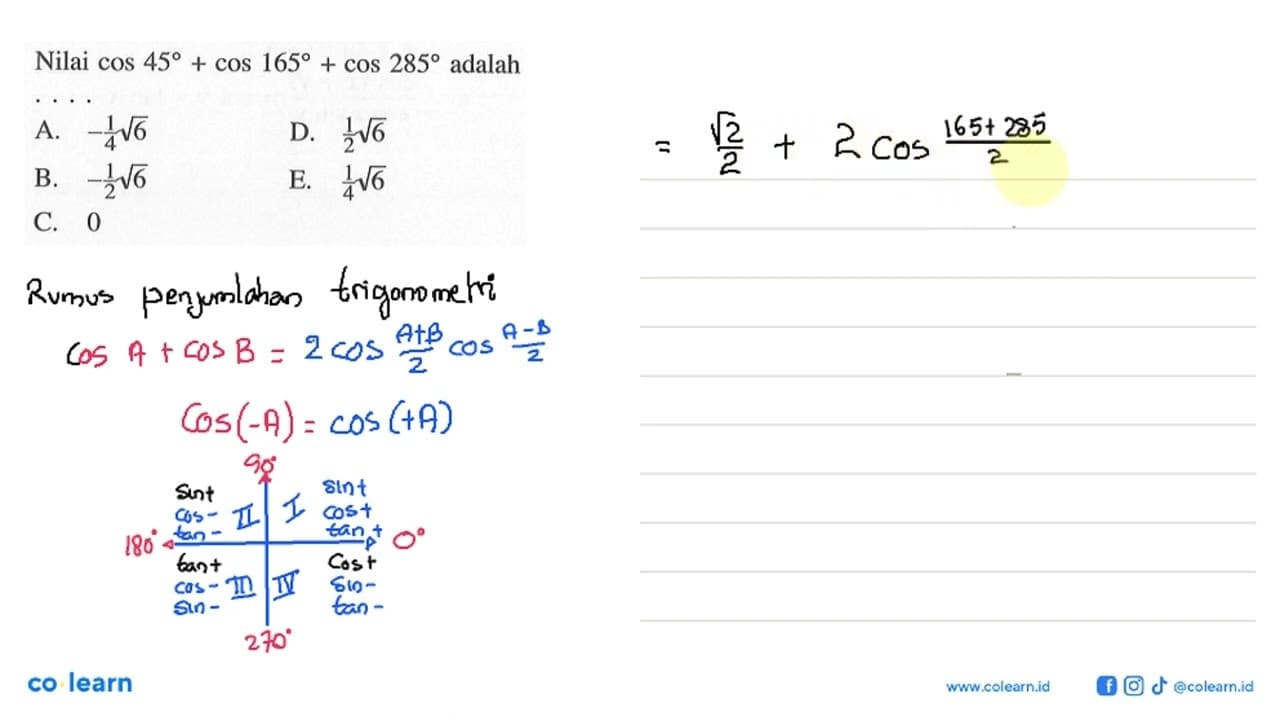 Nilai cos 45° + cos 165° + cos 285° adalah
. . . .
A. -1/4√6 D. 1/2√6
B. -1/2√6 E. 1/4√6
C. 0
= √2/2 + 2 cos (165+285)/2
Rumus penjumlahan trigonometri
cos A + cos B = 2 cos (A+B)/2 cos (A-B)/2
Cos(-A) = cos(+A)
90°
sin+ II I sin+
cos- cos+
tan- tan+
180° 0°
tan+ III IV Cos+
cos- sin-
sin- tan-
270°
co learn
www.colearn.id @colearn.id